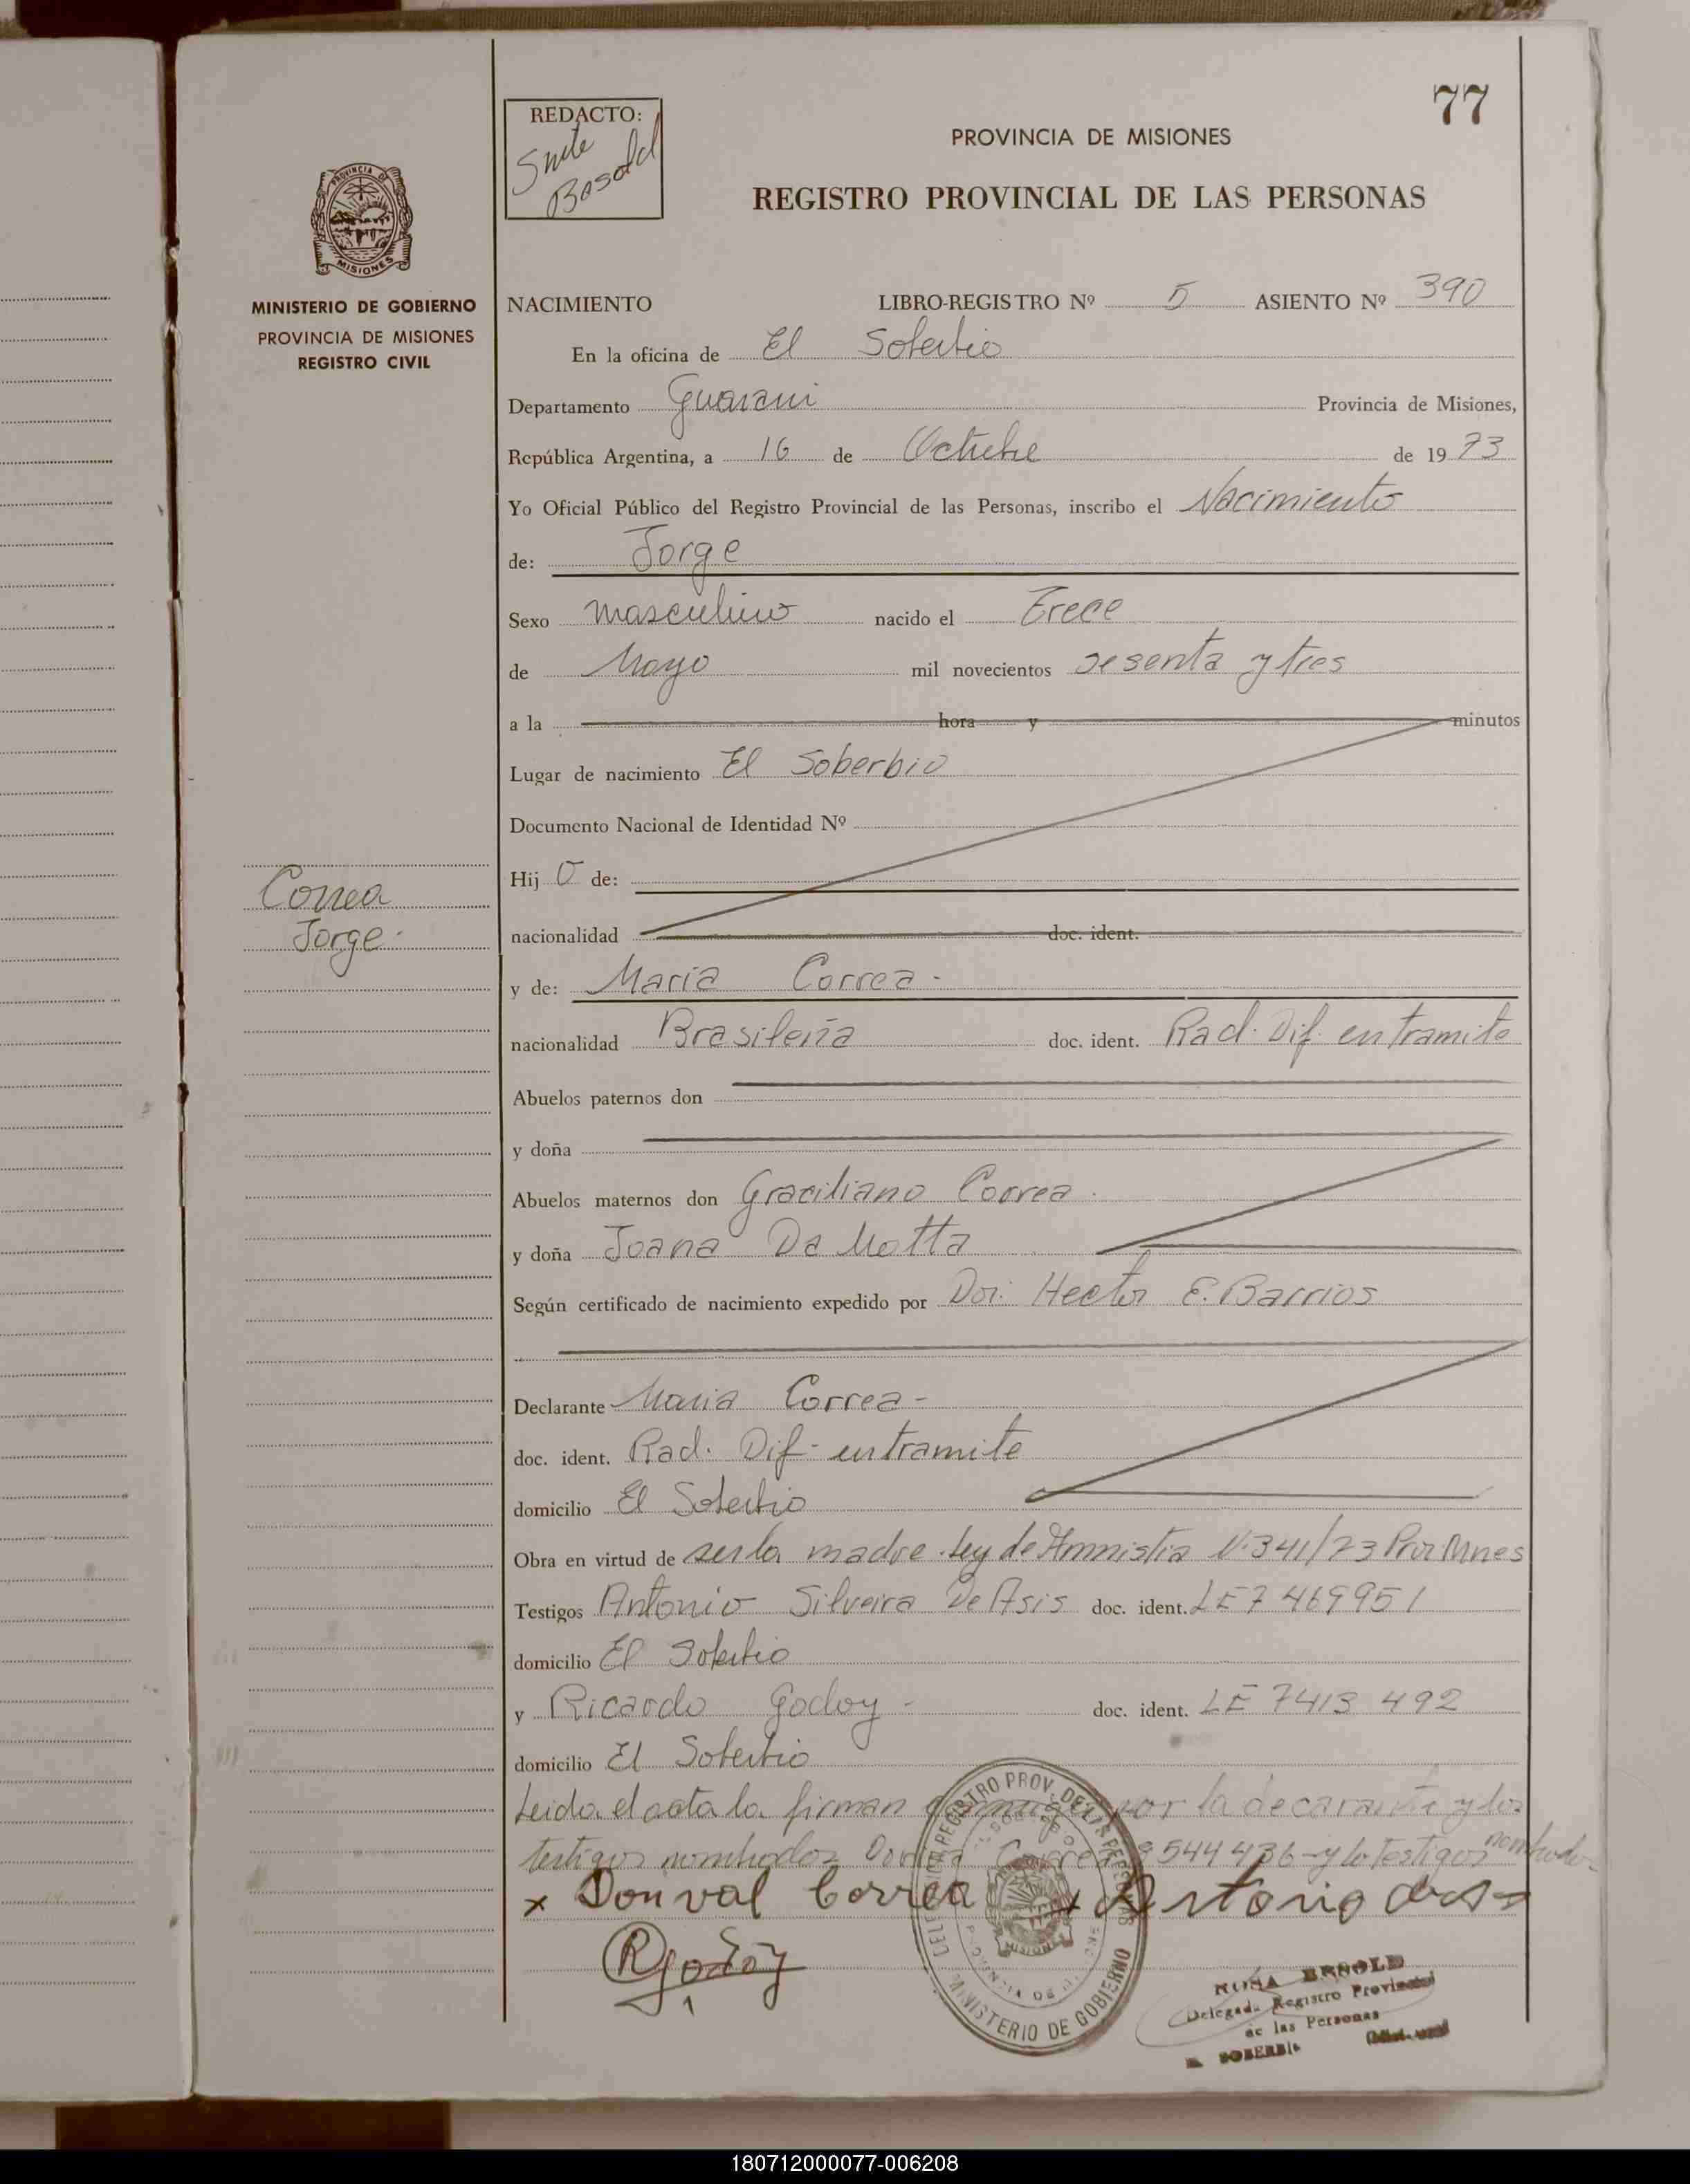 77
REDACTO:
PROVINCIA DE MISIONES
REGISTRO PROVINCIAL DE LAS PERSONAS
PROVINCIA DE
MISIONES
MINISTERIO DE GOBIERNO
PROVINCIA DE MISIONES
REGISTRO CIVIL
NACIMIENTO LIBRO-REGISTRO Nº 5 ASIENTO Nº 390
En la oficina de El Soberbio
Departamento Guarani Provincia de Misiones,
República Argentina, a 16 de Octubre de 1973
Yo Oficial Público del Registro Provincial de las Personas, inscribo el Nacimiento
de: Jorge
Sexo masculino nacido el Trece
de Mayo mil novecientos sesenta y tres
a la hora y minutos
Lugar de nacimiento El Soberbio
Documento Nacional de Identidad Nº
Hij o de:
Correa
Jorge.
nacionalidad doc. ident.
y de: Maria Correa-
nacionalidad Brasileña doc. ident. Rad. Dif. en tramite
Abuelos paternos don
y doña
Abuelos maternos don Graciliano Correa.
y doña Joana Da Motta
Según certificado de nacimiento expedido por Hector E. Barrios
Declarante Maria Correa-
doc. ident. Rad. Dif- en tramite
domicilio El Soberbio
Obra en virtud de ser la madre. Ley de Amnistia N.341/73
Testigos Antonio Silveira De Asis doc. ident. LE 7 469951
domicilio El Soberbio
y Ricardo Godoy- doc. ident. LE 7413 492
domicilio El Soberbio
Leida el acta la firman por la decarante y los
testigos nombrados Correa 544 436-y lo testigos nombrado-
x Donval Correa x Antonio
RGodoy
ROSA
Delegada Registro Provincial
de las Personas
SOBERBIO
REGISTRO PROV. DE LAS PERSONAS
MINISTERIO DE GOBIERNO
180712000077-006208